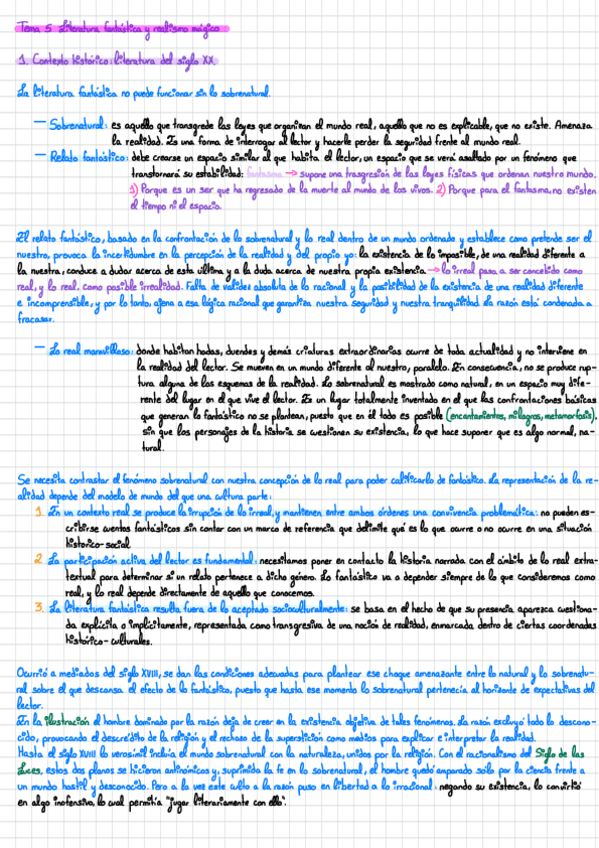 Tema 5 Literatura fantástica y realismo mágico
1. Contexto histórico: literatura del siglo XX
La literatura fantástica no puede funcionar sin lo sobrenatural.
— Sobrenatural: es aquello que transgrede las leyes que organizan el mundo real, aquello que no es explicable, que no existe. Amenaza
la realidad. Es una forma de interrogar al lector y hacerle perder la seguridad frente al mundo real.
— Relato fantástico: debe crearse un espacio similar al que habita el lector, un espacio que se verá asaltado por un fenómeno que
transtornará su estabilidad: fantasma → supone una trasgresión de las leyes físicas que ordenan nuestro mundo.
1) Porque es un ser que ha regresado de la muerte al mundo de los vivos. 2) Porque para el fantasma, no existen
el tiempo ni el espacio.
El relato fantástico, basado en la confrontación de lo sobrenatural y lo real dentro de un mundo ordenado y establece como pretende ser el
nuestro, provoca la incertidumbre en la percepción de la realidad y del propio yo: la existencia de lo imposible, de una realidad diferente a
la nuestra, conduce a dudar acerca de esta última y a la duda acerca de nuestra propia existencia → lo irreal pasa a ser concebido como
real, y lo real, como posible irrealidad. Falta de validez absoluta de lo racional y la posibilidad de la existencia de una realidad diferente
e incomprensible, y por lo tanto, ajena a esa lógica racional que garantiza nuestra seguridad y nuestra tranquilidad. La razón está condenada a
fracasar.
— Lo real maravilloso: donde habitan hadas, duendes y demás criaturas extraordinarias ocurre de toda actualidad y no interviene en
la realidad del lector. Se mueven en un mundo diferente al nuestro, paralelo. En consecuencia, no se produce rup-
tura alguna de los esquemas de la realidad. Lo sobrenatural es mostrado como natural, en un espacio muy dife-
rente del lugar en el que vive el lector. Es un lugar totalmente inventado en el que las confrontaciones básicas
que generan lo fantástico no se plantean, puesto que en él todo es posible (encantamientos, milagros, metamorfosis),
sin que los personajes de la historia se cuestionen su existencia, lo que hace suponer que es algo normal, na-
tural.
Se necesita contrastar el fenómeno sobrenatural con nuestra concepción de lo real para poder calificarlo de fantástico. La representación de la re-
alidad depende del modelo de mundo del que una cultura parte:
1. En un contexto real se produce la irrupción de lo irreal, y mantienen entre ambos órdenes una convivencia problemática: no pueden es-
cribirse cuentos fantásticos sin contar con un marco de referencia que delimite qué es lo que ocurre o no ocurre en una situación
histórico-social.
2. La participación activa del lector es fundamental: necesitamos poner en contacto la historia narrada con el ámbito de lo real extra-
textual para determinar si un relato pertenece a dicho género. Lo fantástico va a depender siempre de lo que consideremos como
real, y lo real depende directamente de aquello que conocemos.
3. La literatura fantástica resulta fuera de lo aceptado socioculturalmente: se basa en el hecho de que su presencia aparezca cuestiona-
da explícita o implícitamente, representada como transgresiva de una noción de realidad, enmarcada dentro de ciertas coordenadas
histórico-culturales.
Ocurrió a mediados del siglo XVIII, se dan las condiciones adecuadas para plantear ese choque amenazante entre lo natural y lo sobrenatu-
ral sobre el que descansa el efecto de lo fantástico, puesto que hasta ese momento lo sobrenatural pertenecía al horizonte de expectativas del
lector.
En la ilustración el hombre dominado por la razón deja de creer en la existencia objetiva de tales fenómenos. La razón excluyó todo lo descono-
cido, provocando el descrédito de la religión y el rechazo de la superstición como medios para explicar e interpretar la realidad.
Hasta el siglo XVIII lo verosímil incluía el mundo sobrenatural con la naturaleza, unidos por la religión. Con el racionalismo del Siglo de las
Luces, estos dos planos se hicieron antinómicos y, suprimida la fe en lo sobrenatural, el hombre quedó amparado solo por la ciencia frente a
un mundo hostil y desconocido. Pero a la vez este culto a la razón puso en libertad a lo irracional: negando su existencia, lo convirtió
en algo inofensivo, lo cual permitía "jugar literariamente con ello".